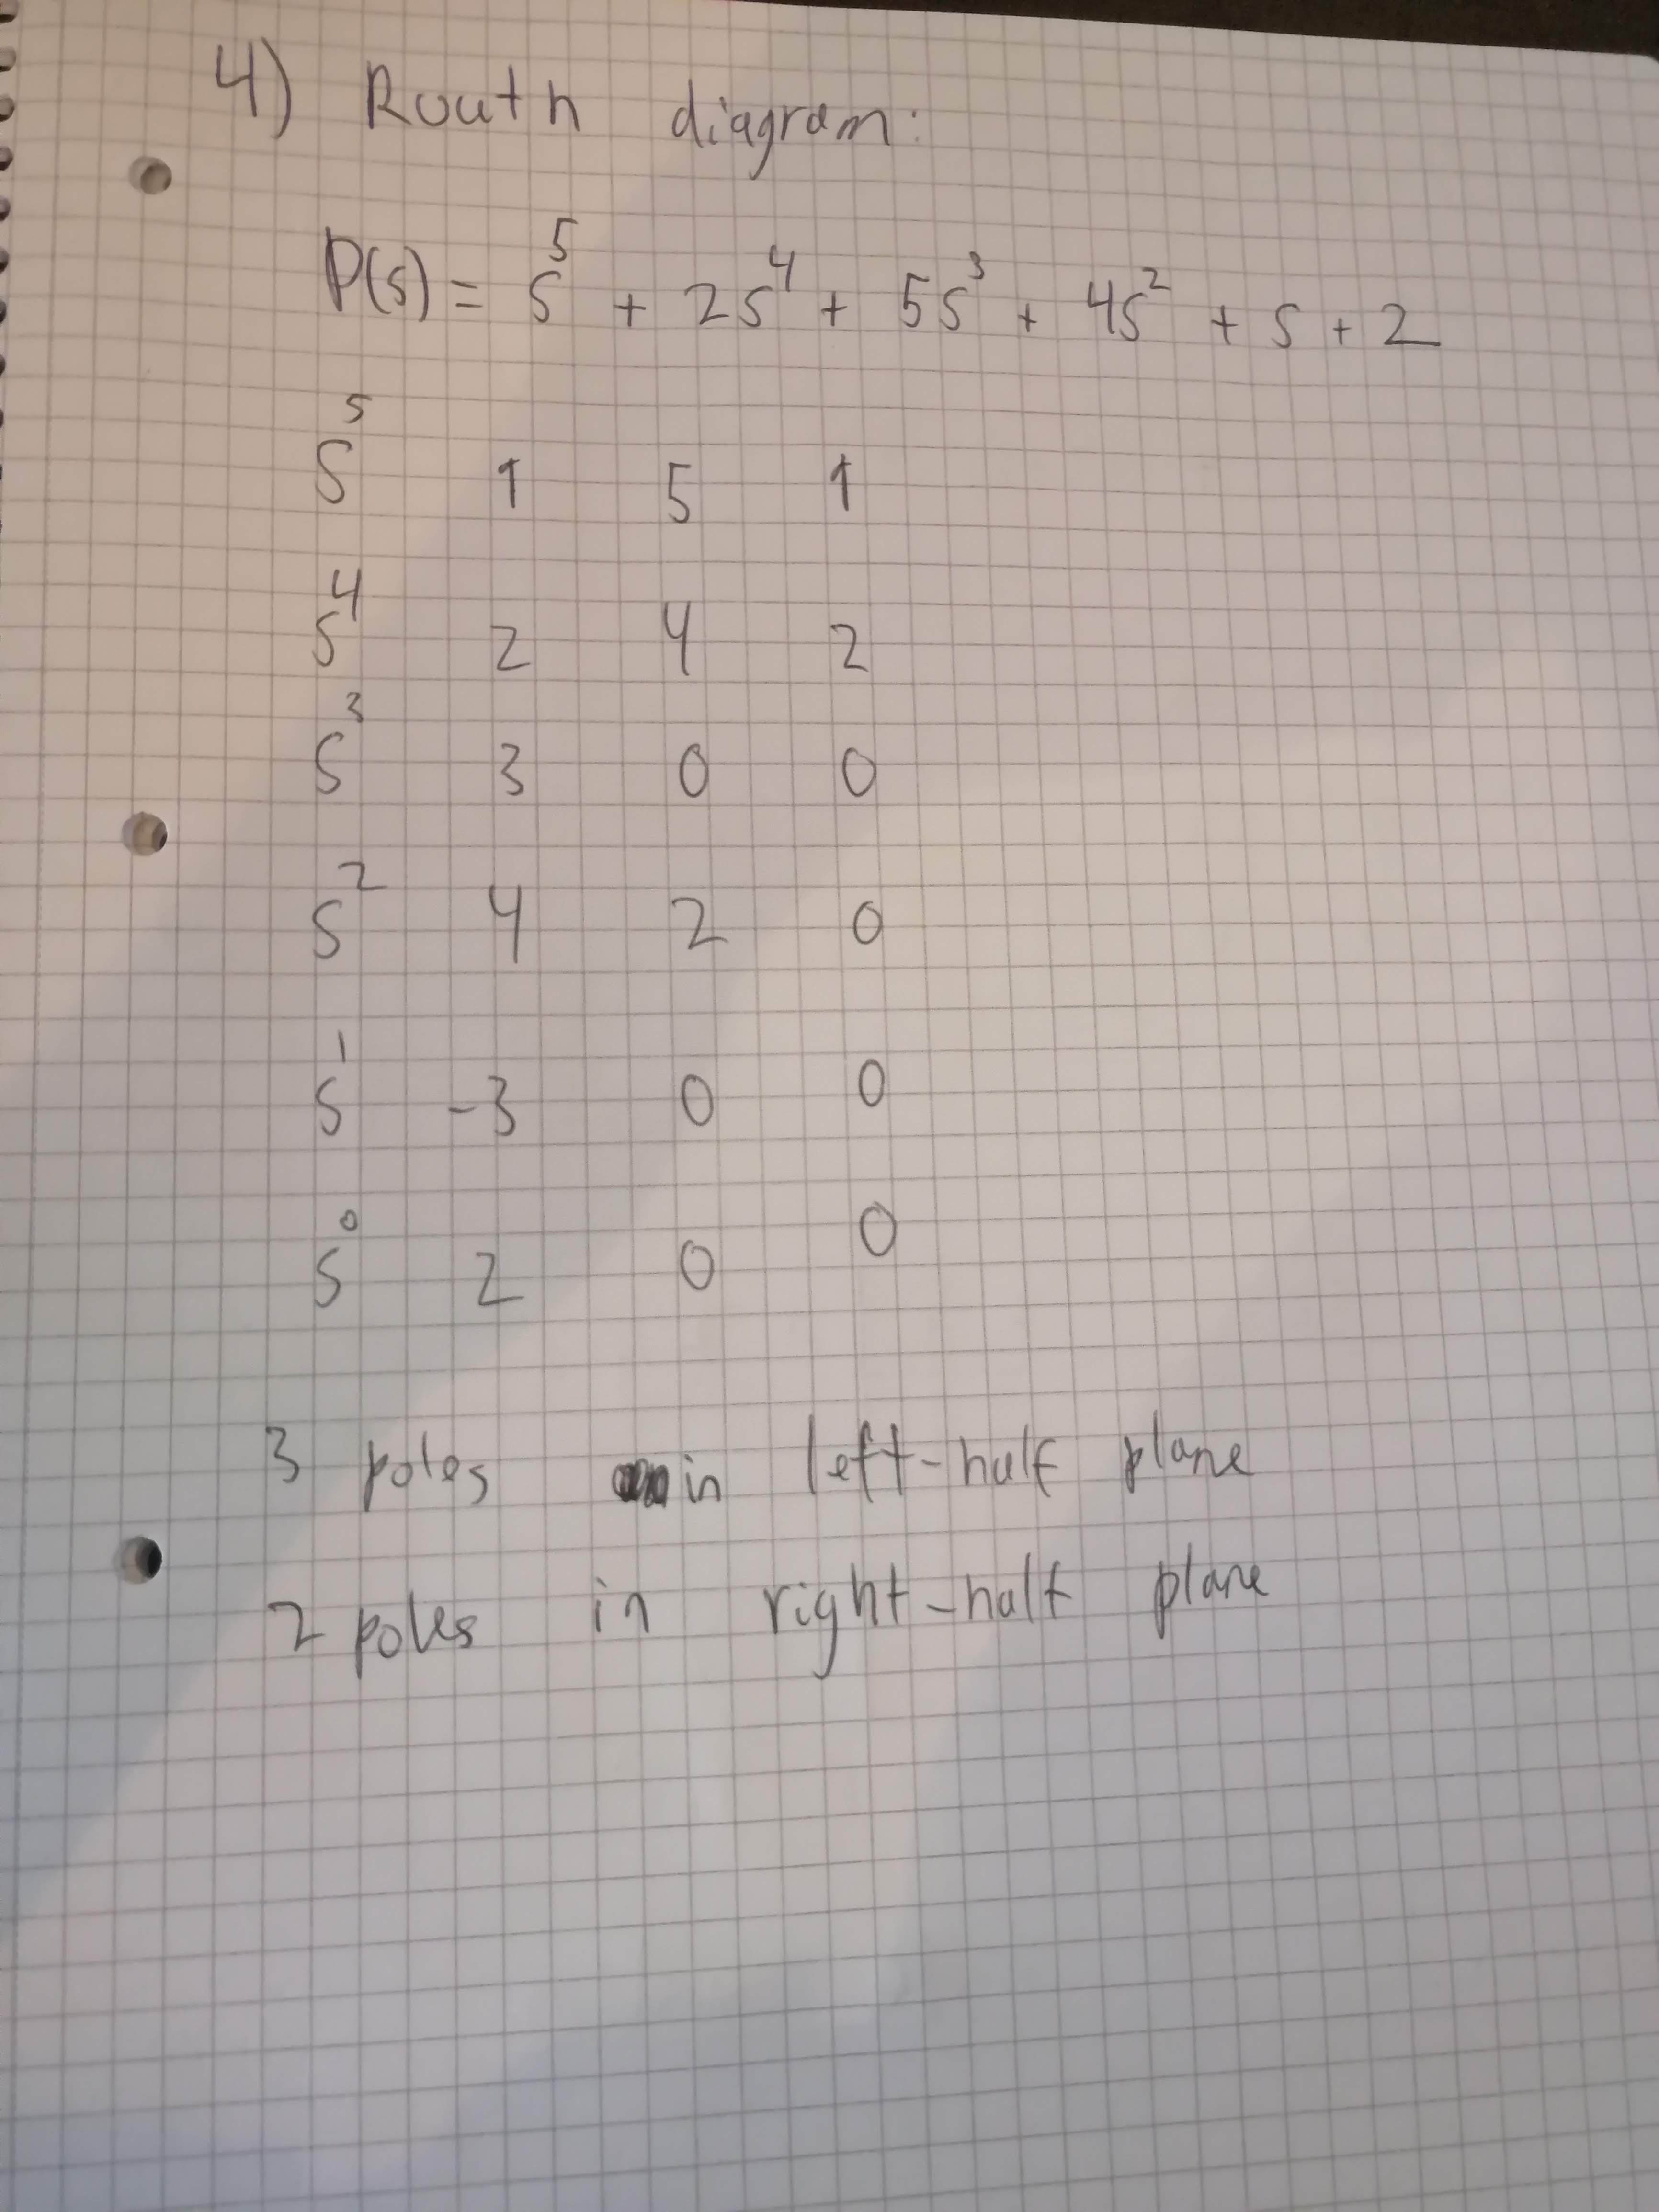 4) Routh diagram:
P(s) = s⁵ + 2s⁴ + 5s³ + 4s² + s + 2
s⁵ 1 5 1
s⁴ 2 4 2
s³ 3 0 0
s² 4 2 0
s¹ -3 0 0
s⁰ 2 0 0
3 poles in left-half plane
2 poles in right-half plane